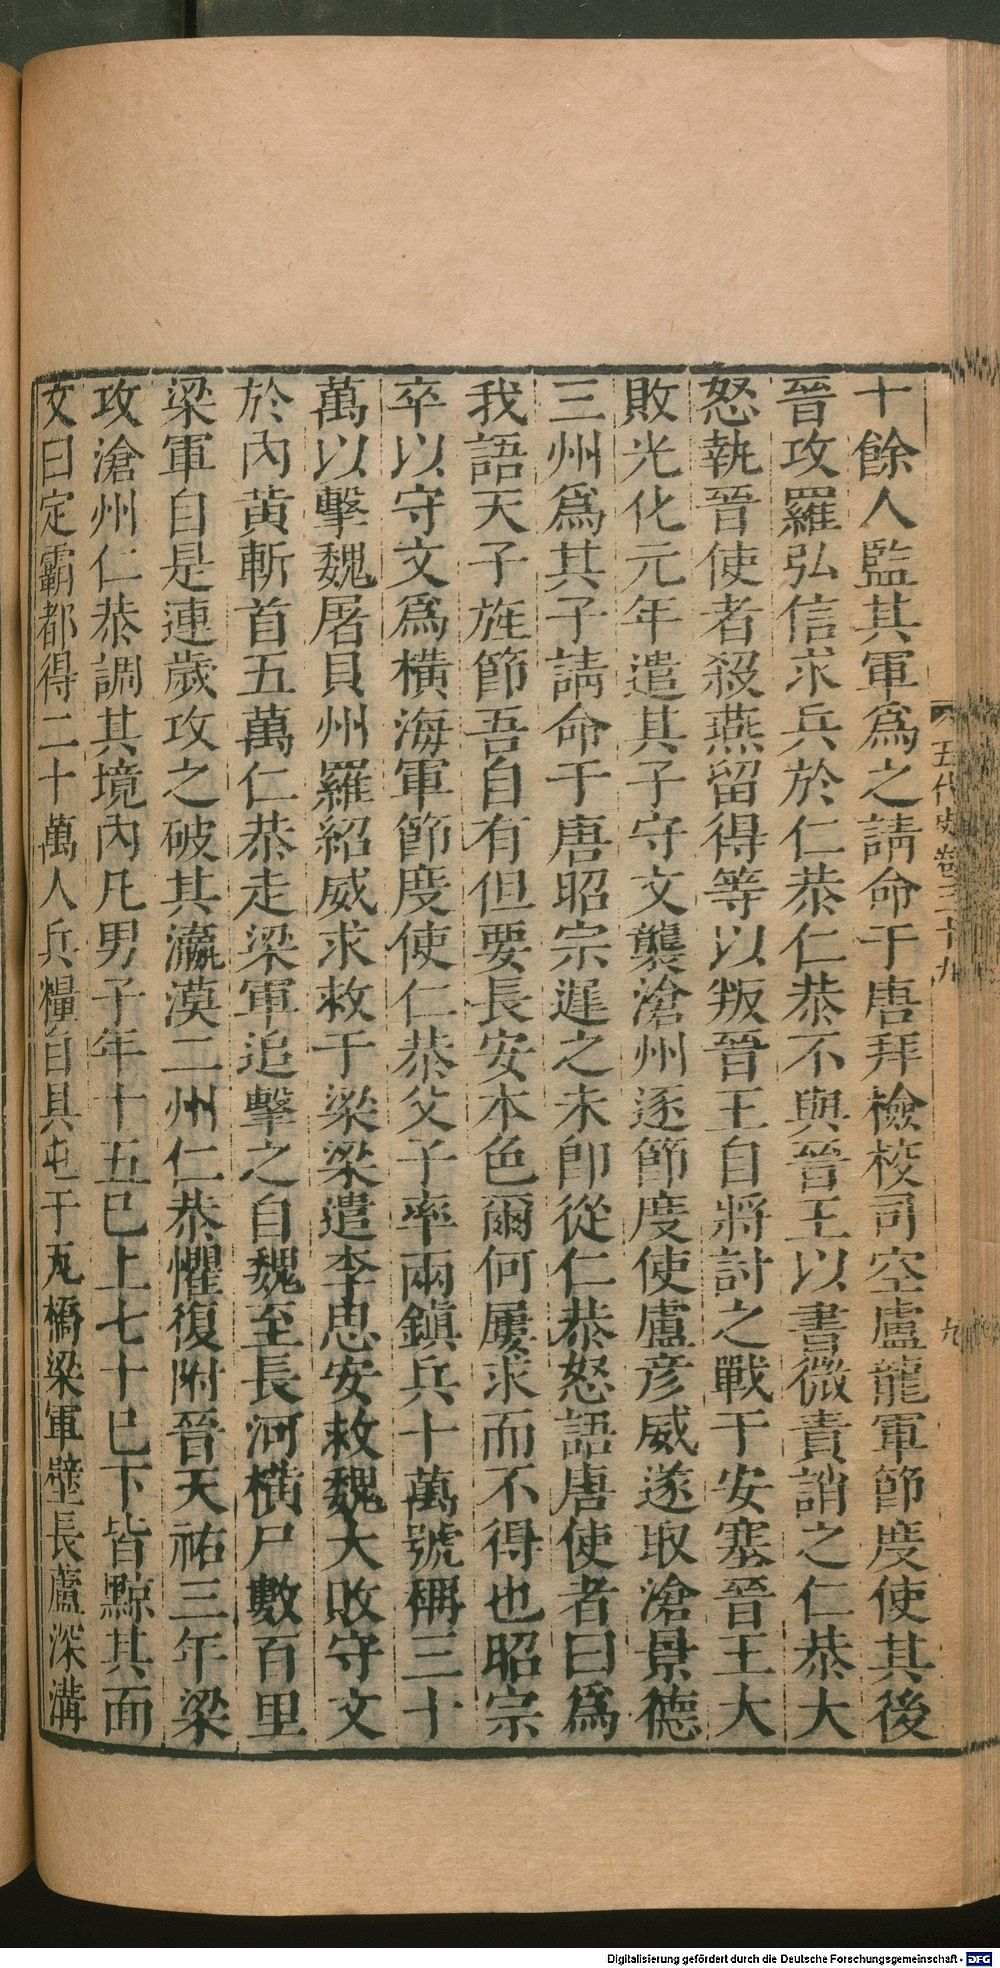 五代史卷三十九
九
十餘人監其軍爲之請命于唐拜檢校司空盧龍軍節度使其後
晉攻羅弘信求兵於仁恭仁恭不與晉王以書微責誚之仁恭大
怒執晉使者殺燕留得等以叛晉王自將討之戰于安塞晉王大
敗光化元年遣其子守文襲滄州逐節度使盧彦威遂取滄景德
三州爲其子請命于唐昭宗遲之未即從仁恭怒語唐使者曰爲
我語天子旌節吾自有但要長安本色爾何屢求而不得也昭宗
卒以守文爲橫海軍節度使仁恭父子率兩鎮兵十萬號稱三十
萬以擊魏屠貝州羅紹威求救于梁梁遣李思安救魏大敗守文
於內黃斬首五萬仁恭走梁軍追擊之自魏至長河橫尸數百里
梁軍自是連歲攻之破其瀛漠二州仁恭懼復附晉天祐三年梁
攻滄州仁恭調其境內凡男子年十五已上七十已下皆黥其面
文曰定霸都得二十萬人兵糧自具屯于瓦橋梁軍壁長蘆深溝
Digitalisierung gefördert durch die Deutsche Forschungsgemeinschaft - DFG